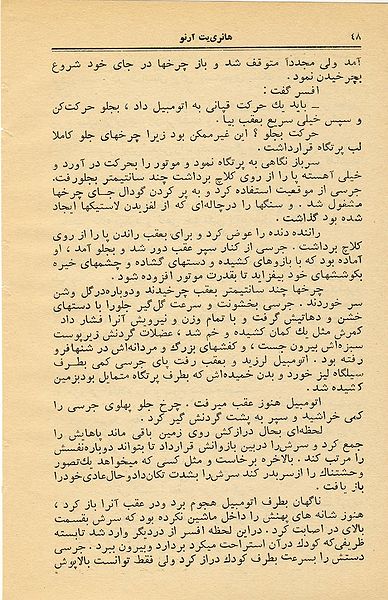 ۴۸ هانری‌یت آرنو
آمد ولی مجدداً متوقف شد و باز چرخها در جای خود شروع
بچرخیدن نمود.
افسر گفت :
ـ باید یك حرکت قپانی به اتومبیل داد ، بجلو حرکت‌کن
و سپس خیلی سریع بعقب بیا .
حرکت بجلو ؟ این غیرممکن بود زیرا چرخهای جلو کاملا
لب پرتگاه قرارداشت .
سرباز نگاهی به پرتگاه نمود و موتور را بحرکت در آورد و
خیلی آهسته پا را از روی کلاچ برداشت چند سانتیمتر بجلورفت.
جرسی از موقعیت استفاده کرد و به پر کردن گودال جـای چرخها
مشغول شد . و سنگها را درچاله‌ای که از لغزیدن لاستیکها ایجاد
شده بود گذاشت .
راننده دنده را عوض کرد و برای بعقب راندن پا را از روی
کلاچ برداشت . جرسی از کنار سپر عقب دور شد و بجلو آمد ، او
آماده بود که با بازوهای کشیده و دستهای گشاده و چشمهای خیره
بکوششهای خود بیفزاید تا بقدرت موتور افزوده شود .
چرخها چند سانتیمتر بعقب چرخیدند ودوباره‌درگل وشن
سر خوردند . جرسی بخشونت و سرعت گل‌گیر جلورا با دستهای
خشن و دهاتیش گرفت و با تمام وزن و نیرویش آنرا فشار داد
کمرش مثل یك کمان کشیده و خم شد ، عضلات گردنش زیرپوست
سبزه‌اش بیرون جست ، و کفشهای بزرگ و مردانه‌اش در شنهافرو
رفته بود . اتومبیل لرزید و بعقب رفت پای جرسی کمی بطـرف
سیلگاه لیز خورد و بدن خمیده‌اش که بطرف پرتگاه متمایل بودبزمین
کشیده شد .
اتومبیل هنوز عقب میرفت . چرخ جلو پهلوی جرسی را
کمی خراشید و سپر به پشت گردنش گیر کرد .
لحظه‌ای بحال درازکش روی زمین باقی ماند پاهایش را
جمع کرد و سرش‌را دربین بازوانش قرارداد تا بتواند دوباره‌نفسش
را مرتب کند . بالاخره برخاست و مثل کسی که میخواهد یك‌تصور
وحشتناك را ازسربدر کند سرش‌را بشدت تکان‌دادوحال‌عادی‌خودرا
باز یافت .
ناگهان بطرف اتومبیل هجوم برد ودر عقب آنرا باز کرد ،
هنوز شانه های پهنش را داخل ماشین نکرده بود که سرش بقسمت
بالای در اصابت کرد . دراین لحظه افسر از دردیگر وارد شد تابسته
ظریفی‌که کودك درآن استراحت میکرد بردارد وبیرون ببرد . جرسی
دستش را بسرعت بطرف کودك دراز کرد ولی فقط توانست بالاپوش